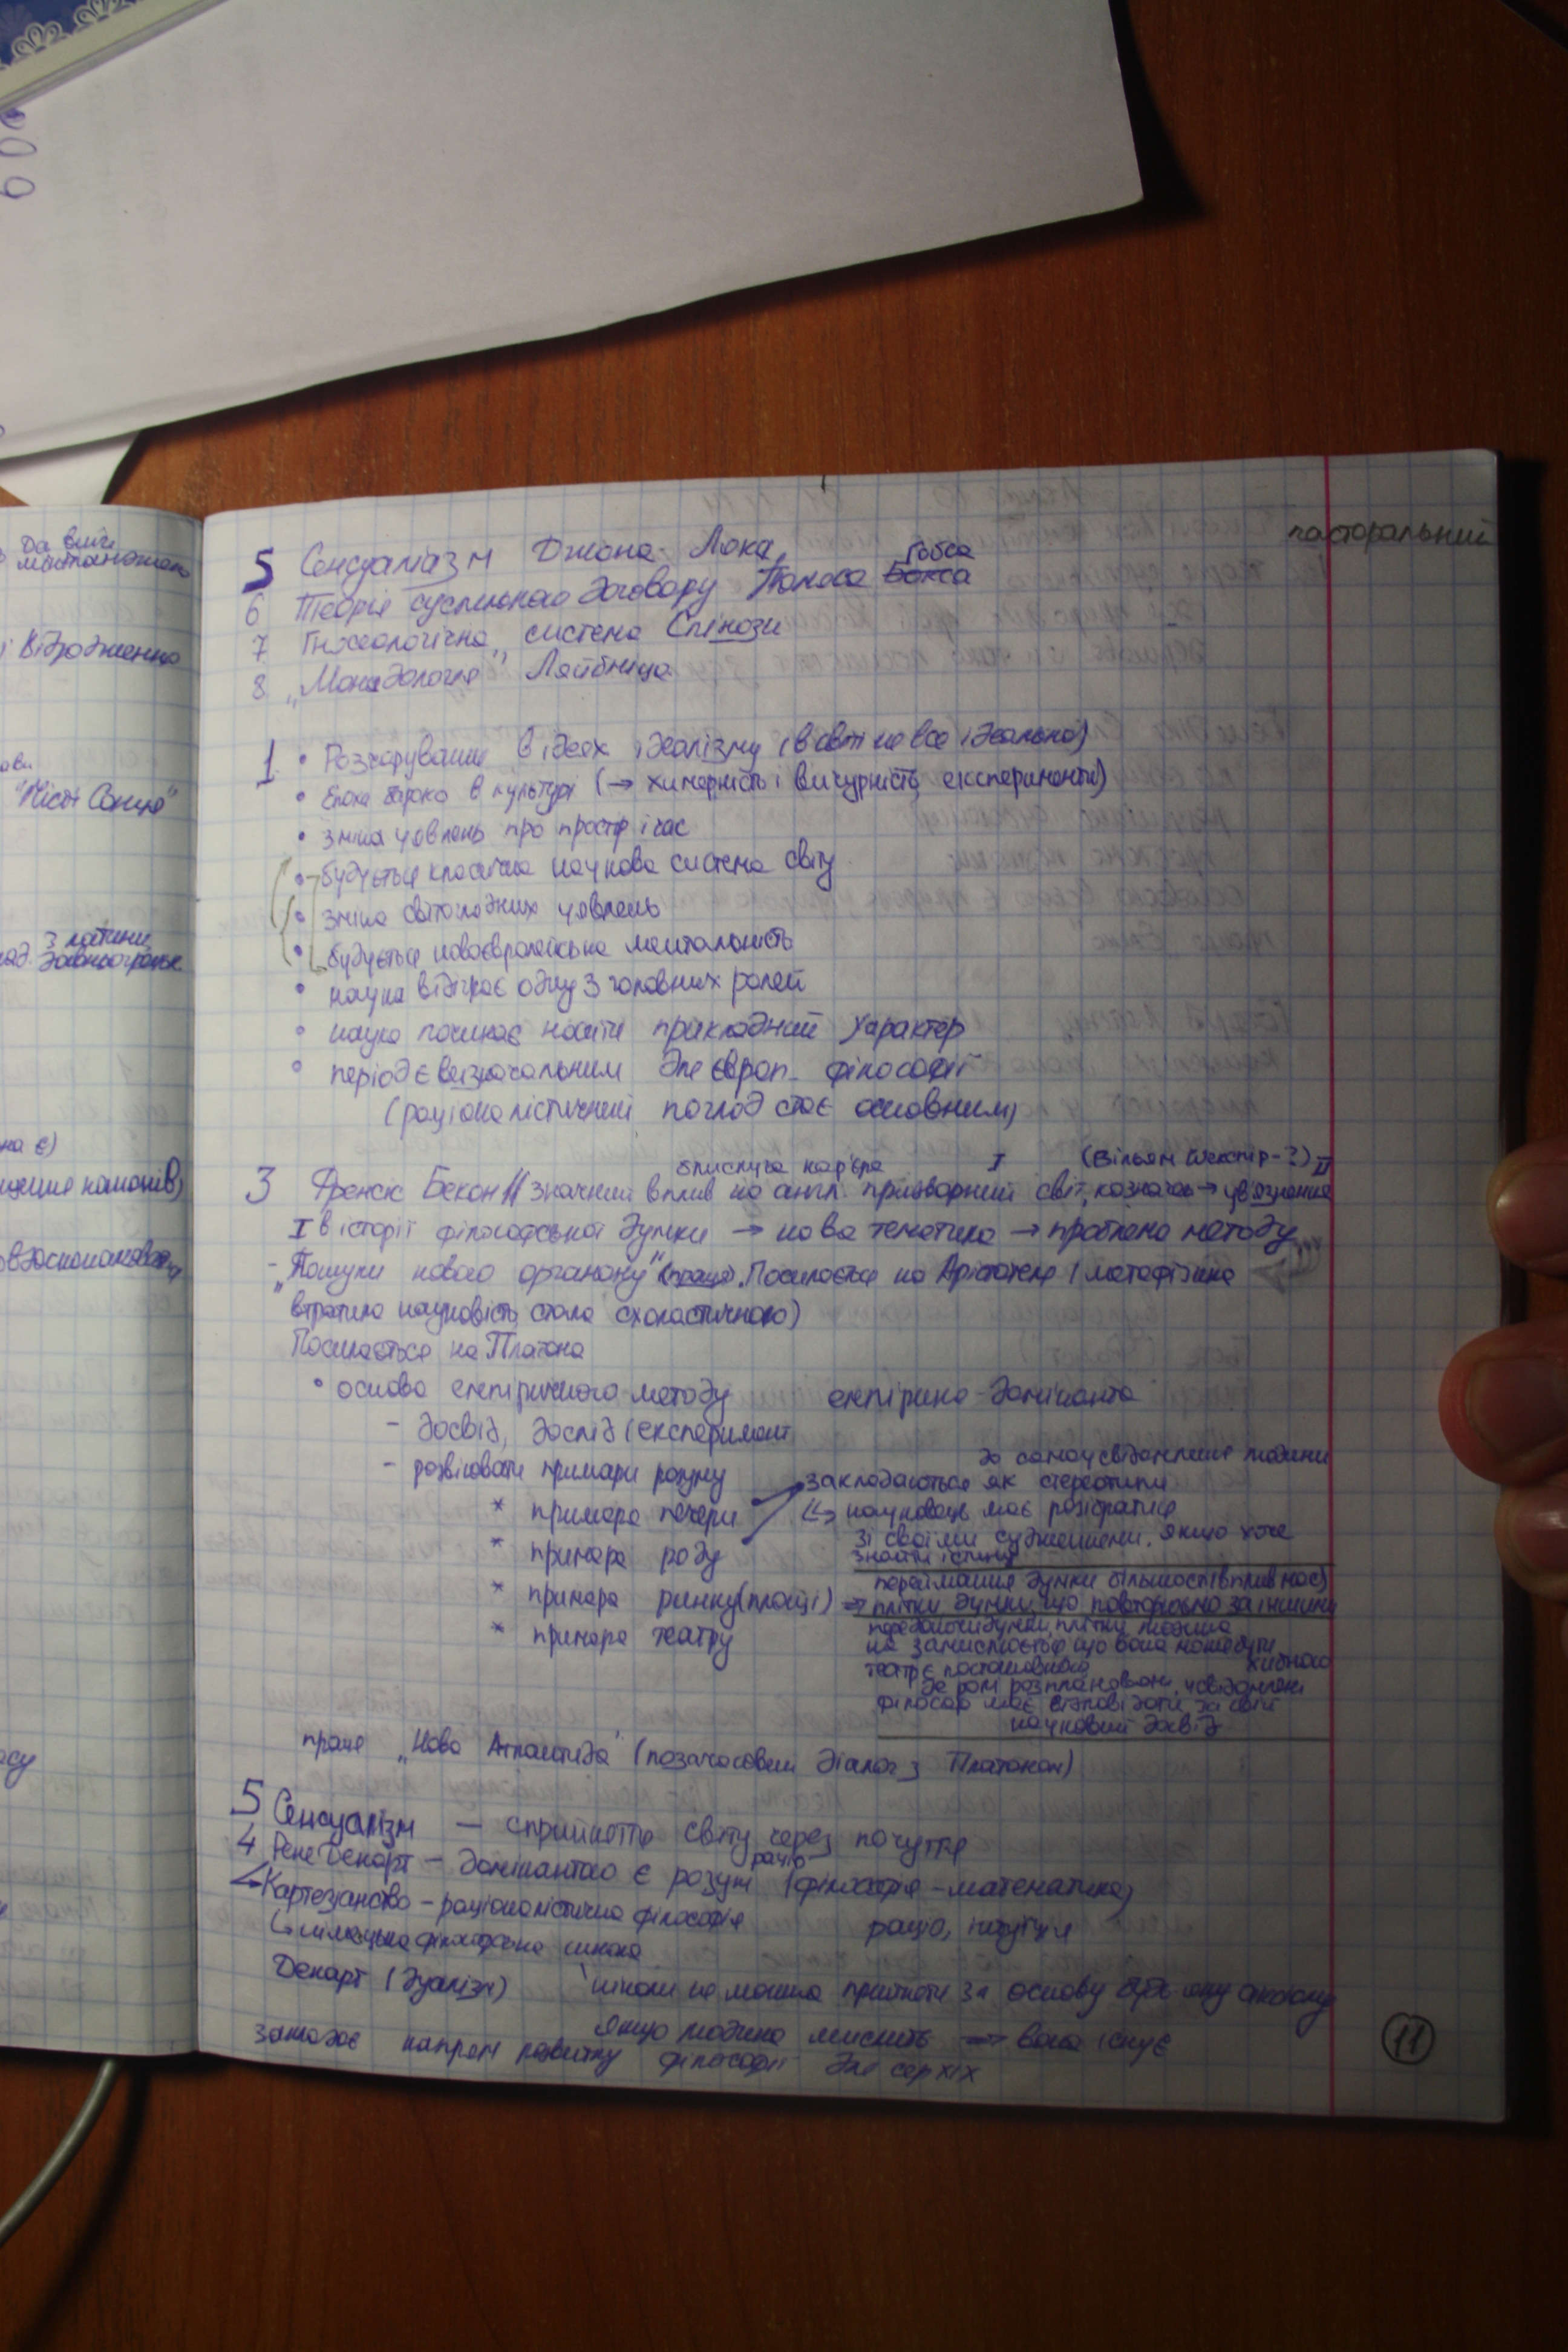 пасторальний
5 Сенсуалізм Джона Лока
6 Теорія суспільного договору Томаса Бокса Гобса
7 Гносеологічна система Спінози
8 „Монадологія" Ляйбніца
1 • Розчарування в ідеях ідеалізму (в світі не все ідеально)
• Епоха бароко в культурі (→ химерність і вичурність, експерименти)
• зміна уявлень про простір і час
• будується класична наукова система світу
• зміна світоглядних уявлень
• будується новоєвропейська ментальність
• наука відіграє одну з головних ролей
• наука починає носити прикладний характер
• період є визначальним для європ. філософії
(раціоналістичний погляд стає основним)
блискуча кар'єра I (Вільям Шекспір-?) II
3 Френсіс Бекон // значний вплив на англ. придворний світ, казначей → ув'язнення
I в історії філософської думки → нова тематика → проблема методу
- „Пошуки нового органону" (праця). Посилається на Арістотеля (метафізика
втратила науковість, стала схоластичною)
Посилається на Платона
• основа емпіричного методу емпірика - домінанта
- досвід, дослід (експеримент
- розвіювати примари розуму
* примара печери
* примара роду
* примара ринку (площі) ⇒
* примара театру
до самоусвідомлення людини
закладаються як стереотипи
↳ науковець має розібратися
зі своїми судженнями, якщо хоче
знайти істину
переймання думки більшості (вплив мас)
плітки, думки, що повторюємо за іншими
передаючи думки, плітки людина
не замислюється, що вона може бути
хибною
театр є постановкою
де ролі розплановані, усвідомлені
філософ має відповідати за свій
науковий досвід
праця „Нова Атлантида" (позачасовий діалог з Платоном)
5 Сенсуалізм — сприйняття світу через почуття
4 Рене Декарт – домінантою є розум раціо (філософія – математика)
Картезіанство – раціоналістична філософія раціо, інтуїція
↳ німецька філософська школа
Декарт (дуалізм) ніколи не можна прийняти за основу будь-яку аксіому
якщо людина мислить ⇒ вона існує
закладає напрям розвитку філософії для сер XIX
11
Відродження
"Місто Сонця"
з латини
на є)